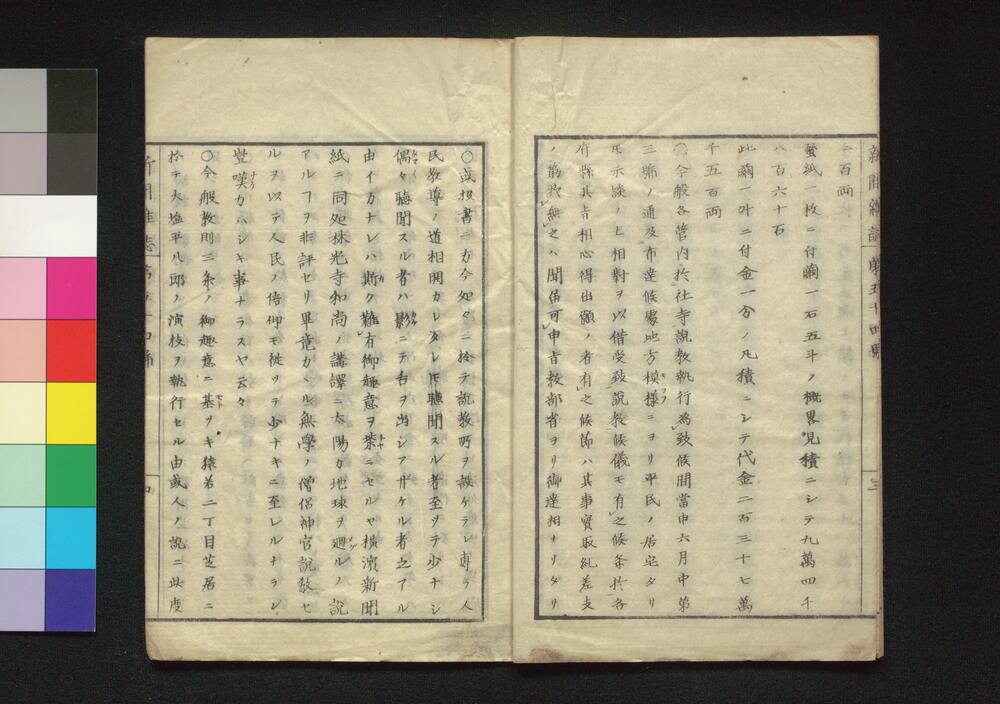 新聞雑誌 第五十四號 三
〻百両
蚕紙一枚ニ付繭一石五斗ノ概畧見積ニシテ九萬四千
八百六十石
此繭一升ニ付金一分ノ凡積ニシテ代金二百三十七萬
千五百両
〇今般各管内於社寺説教執行為致候間當申六月中第
三縣ノ通及布達候處地方模様ニヨリ平民ノ居宅タリ
圧示談ノ上相對ヲ以借受致説教候儀モ有之候条於各
府縣其旨相心得出願ノ者有之候節ハ其事實取糺差支
ノ筋於無之ハ聞届可申旨教部省ヨリ御達相ナリタリ
〇或投書ニ方今処々ニ於テ説教所ヲ設ケラレ専ラ人
民教導ノ道相開カレタレ圧聴聞スル者至ツテ少ナシ
偶々聴聞スル者ハ影ニテ舌ヲ出シアザケル者之アル
由イカナレハ斯ク難有御趣意ヲ茶ニセルヤ横濱新聞
紙ニ同処林光寺和尚ノ講譯ニ太陽カ地球ヲ廻ルノ説
アルヿヲ非評セリ畢竟カヽル無學ノ僧侶神官説教セ
ルヲ以テ人民ノ信仰モ従ツテ少ナキニ至レルナラン
豈嘆カハシキ事ナラスヤ云々
〇今般教則三条ノ御趣意ニ基ヅキ猿若二丁目芝居ニ
於テ大塩平八郎ノ演技ヲ執行セル由或人ノ説ニ此度
新聞雑誌 第五十四號 四